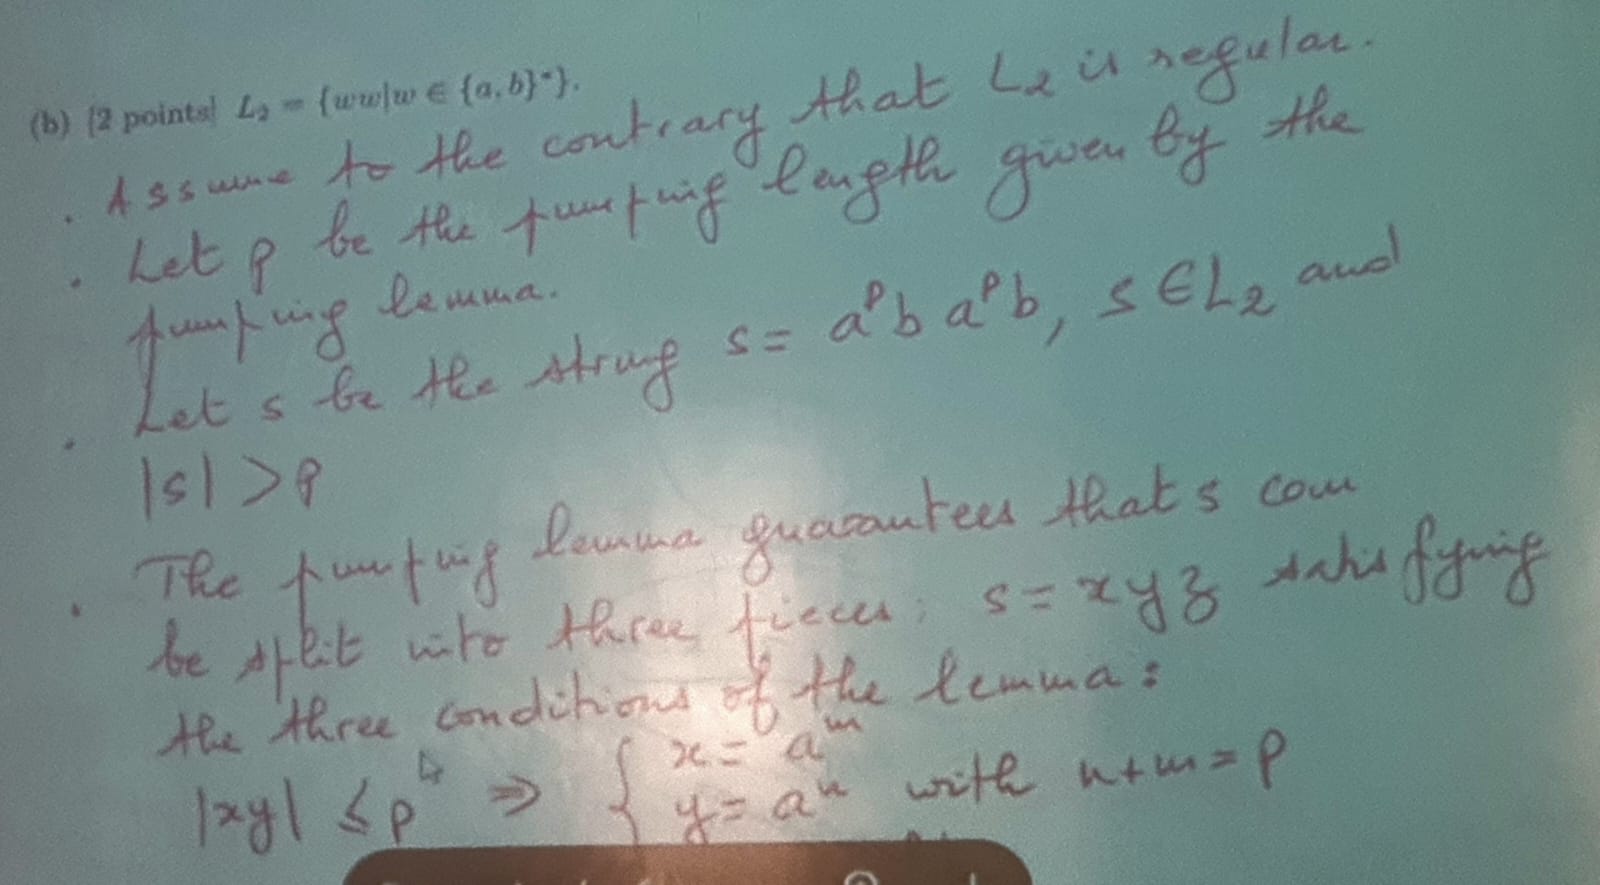 (b) [2 points] L₂ = {ww|w ∈ {a,b}*}.
. Assume to the contrary that L₂ is regular.
. Let p be the pumping length given by the
pumping lemma.
. Let s be the string s = aᵖb aᵖb, s ∈ L₂ and
|s| > p
. The pumping lemma guarantees that s can
be split into three pieces, s = xyz satisfying
the three conditions of the lemma:
|xy| ≤ p ⇒ { x = aᵐ
y = aⁿ with n+m = p